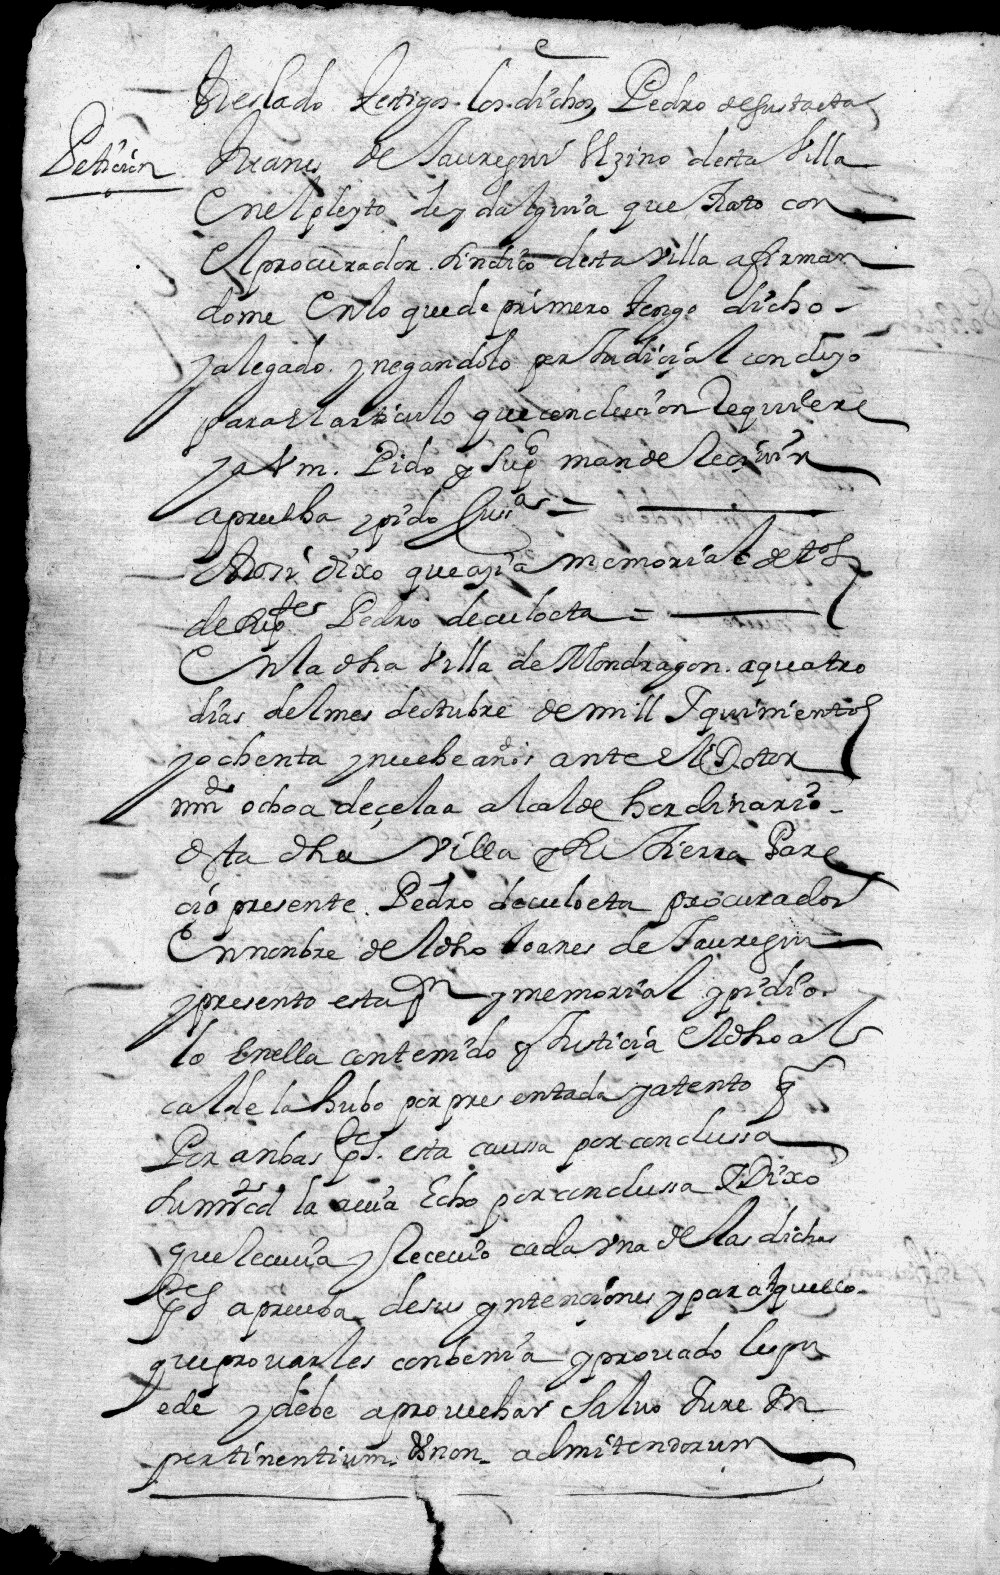 treslado testigos los dichos Pedro de
Petición
Juanes de Jauregui Vzino desta Villa
En el pleyto de ydalguia que trato con
El procurador sindico desta Villa afirman
dome En lo que de primero tengo dicho
y alegado y negando lo perjudicial concluyo
para El articulo que conclusion Requiere
y a Vm. Pido y Sup.co mande Recivir
a prueba y pido Jus.a =
E ansi dixo que açia memorial de t.os
de Rep.tes Pedro de culoeta =
En la dha Villa de Mondragon a quatro
dias del mes de otubre de mill E quinientos
y ochenta y nuebe años ante El Dotor
ochoa de çelaa alcalde hordinario
desta dha Villa y su tierra Pare
cio presente Pedro de culoeta procurador
En nonbre del dho Joanes de Jauregui
y presento esta p.on y memorial y pidio
lo En ella contenido y Justicia El dho al
calde la hubo por presentada y atento q
Por anbas p.tes esta causa por conclussa
Su m.rced la avia Echo por conclussa E Dixo
que Recevia y Recevio cada vna de las dichas
p.tes a prueba de sus yntenciones y para aquello
que provarles conbenia y provado les pu
ede y debe aprovechar Salvo Jure Yn
pertinentium & non admitendorum